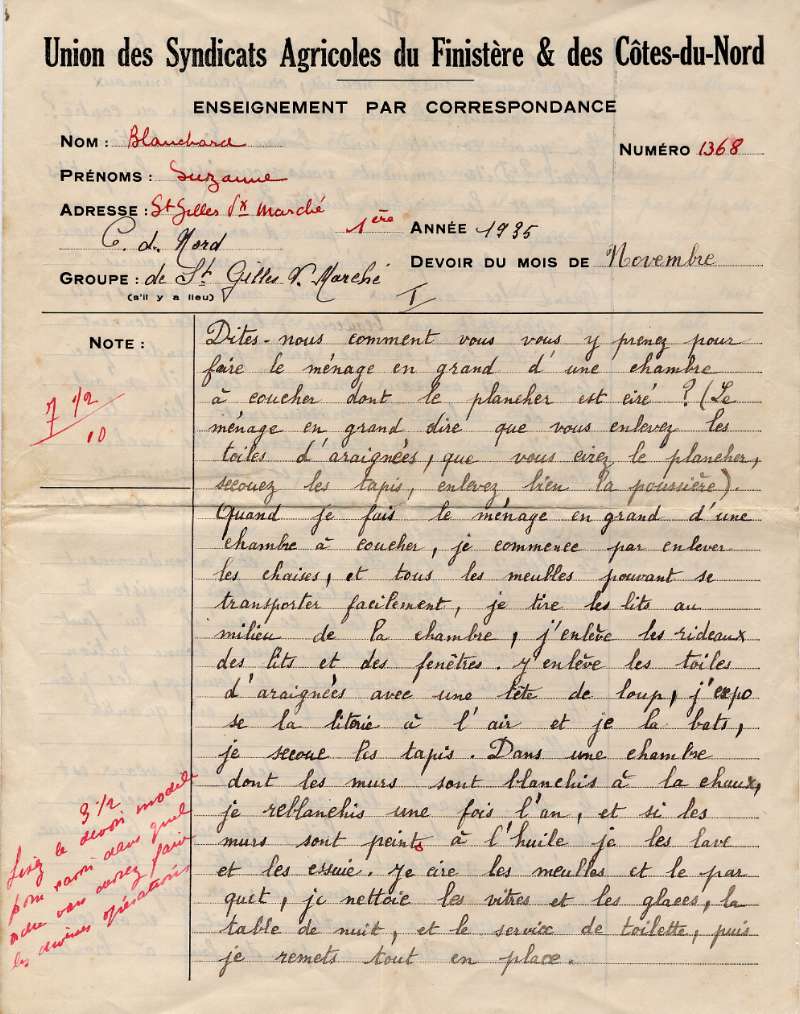 Union des Syndicats Agricoles du Finistère & des Côtes-du-Nord
ENSEIGNEMENT PAR CORRESPONDANCE
NOM : Blanchard
NUMÉRO 1368
PRÉNOMS : Suzanne
ADRESSE : St Gilles Vx Marché
1ère ANNÉE 1935
C. du Nord
DEVOIR DU MOIS DE Novembre
GROUPE : de St Gilles V. Marché
(s'il y a lieu)
I
NOTE :
7 1/2
10
Dites-nous comment vous vous y prenez pour
faire le ménage en grand d'une chambre
à coucher dont le plancher est ciré ? (Le
ménage en grand dire que vous enlevez les
toiles d'araignées, que vous cirez le plancher,
secouez les tapis, enlevez bien la poussière).
Quand je fais le ménage en grand d'une
chambre à coucher, je commence par enlever
les chaises, et tous les meubles pouvant se
transporter facilement, je tire les lits au
milieu de la chambre, j'enlève les rideaux
des lits et des fenêtres. J'enlève les toiles
d'araignées avec une tête de loup, j'expo
se la literie à l'air et je la bats,
je secoue les tapis. Dans une chambre
dont les murs sont blanchis à la chaux,
je reblanchis une fois l'an, et si les
murs sont peints à l'huile je les lave
et les essuie. Je cire les meubles et le par
quet, je nettoie les vitres et les glaces, la
table de nuit, et le service de toilette, puis
je remets tout en place.
3 1/2
Lisez le devoir modèle
pour savoir dans quel
ordre vous devez faire
les diverses opérations